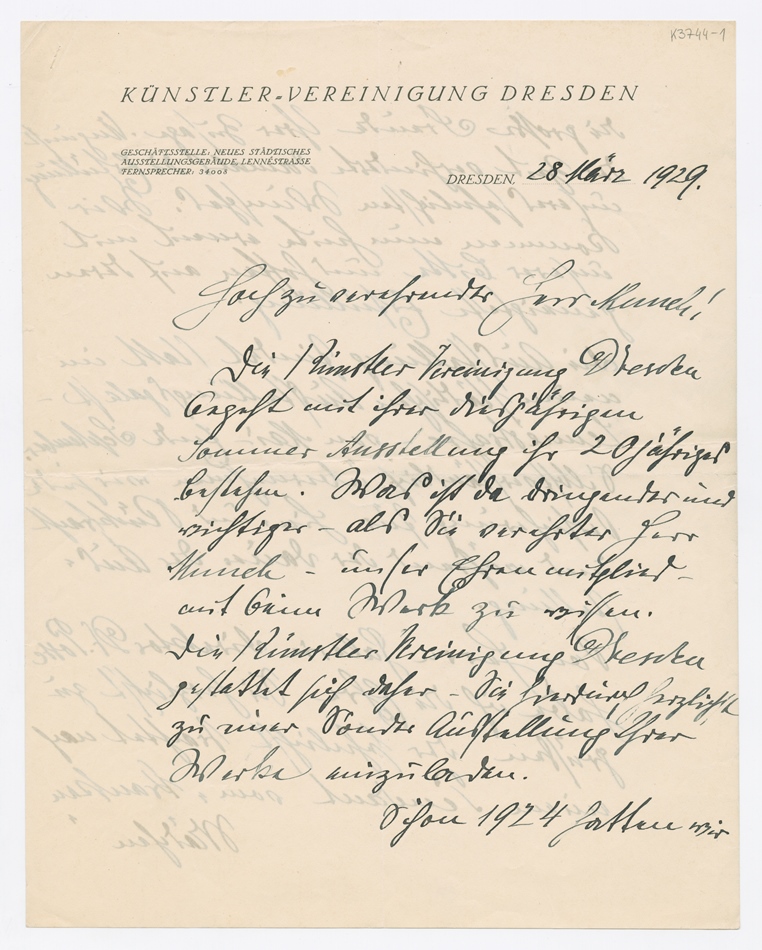 K3744-1
KÜNSTLER-VEREINIGUNG DRESDEN
GESCHÄFTSSTELLE: NEUES STÄDTISCHES
AUSSTELLUNGSGEBÄUDE, LENNÉSTRASSE
FERNSPRECHER: 34008
DRESDEN, 28 März 1929.
Hochzuverehrender Herr Munch!
Die Künstler Vereinigung Dresden
begeht mit ihrer diesjährigen
Sommer Ausstellung ihr 20jähriges
bestehen. Was ist da dringender und
wichtiger – als Sie verehrter Herr
Munch – unser Ehrenmitglied –
mit beim Werk zu wissen.
Die Künstler Vereinigung Dresden
gestattet sich daher – Sie hierdurch herzlichst
zu einer Sonder Ausstellung Ihrer
Werke einzuladen.
Schon 1924 hatten wir